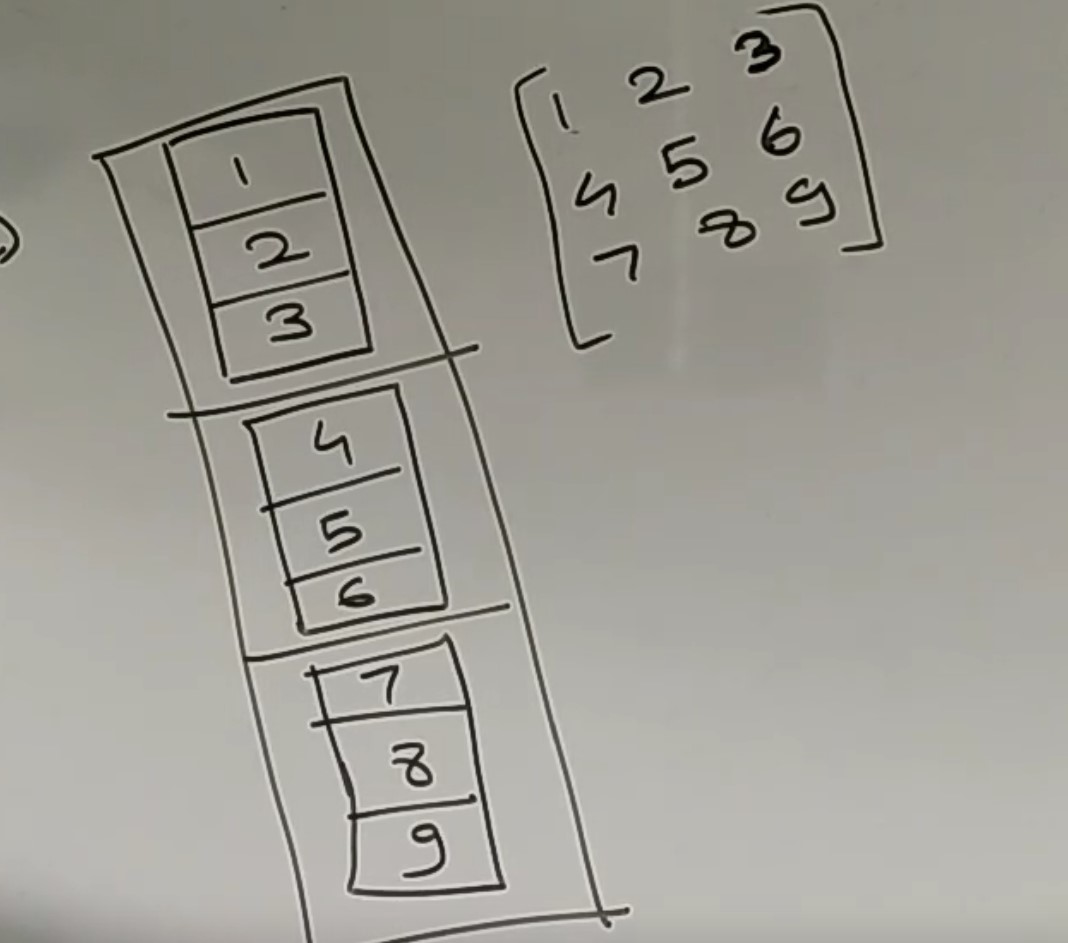 1 2 3
4 5 6
7 8 9
)
1
2
3
4
5
6
7
8
9